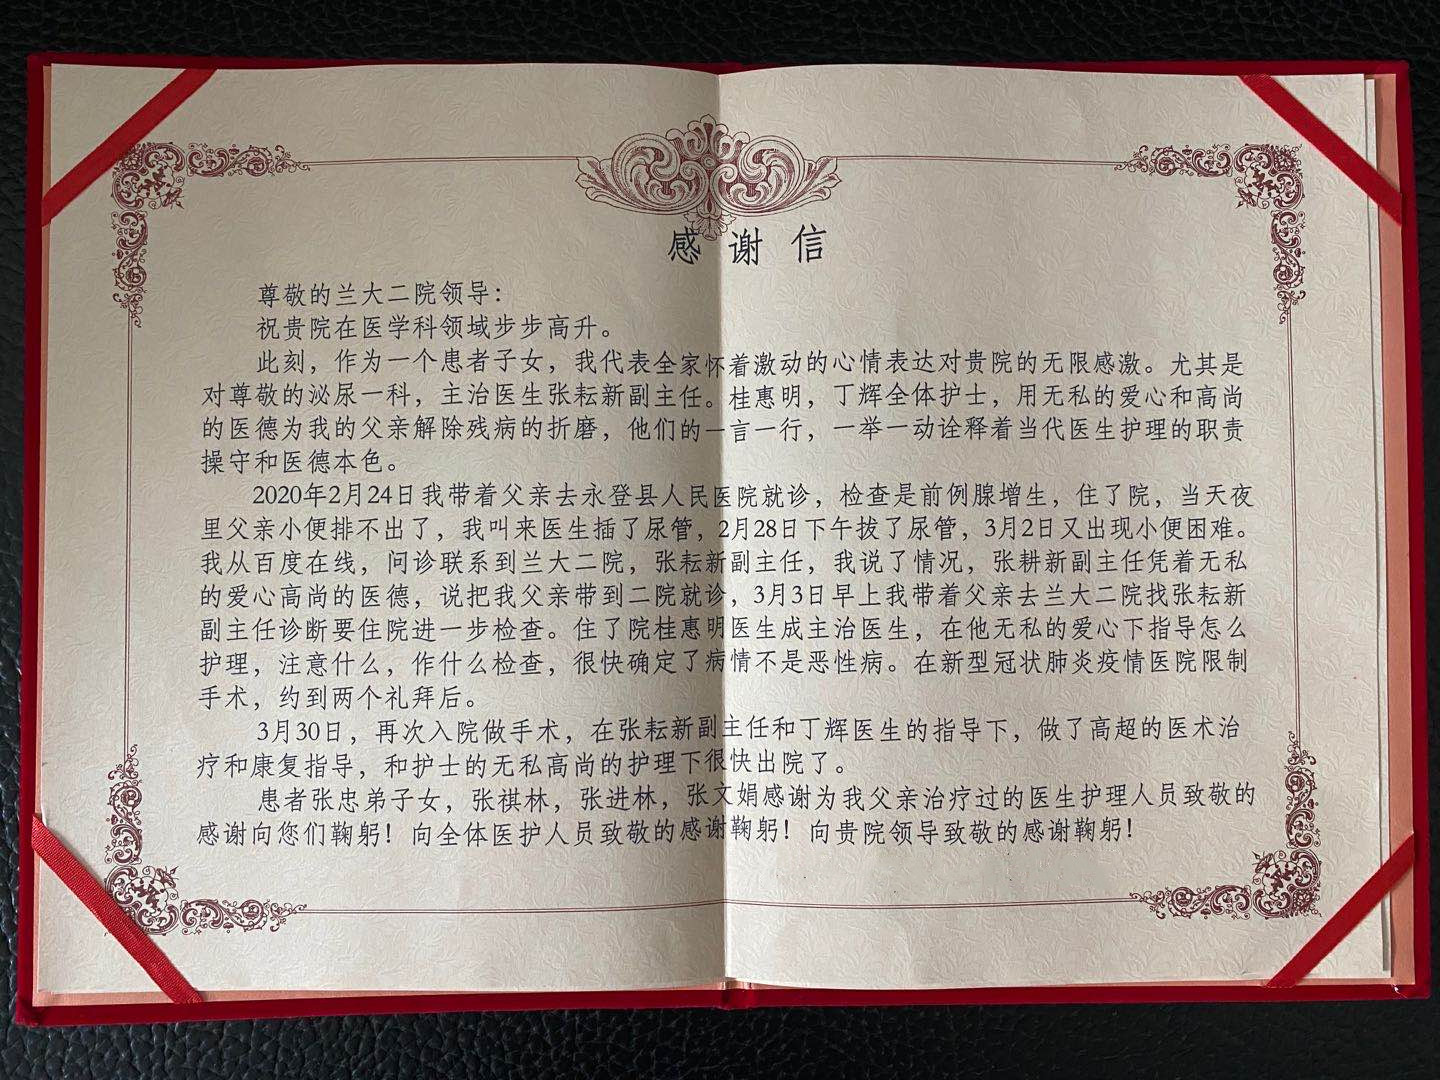 感谢信
尊敬的兰大二院领导：
祝贵院在医学科领域步步高升。
此刻，作为一个患者子女，我代表全家怀着激动的心情表达对贵院的无限感激。尤其是
对尊敬的泌尿一科，主治医生张耘新副主任。桂惠明，丁辉全体护士，用无私的爱心和高尚
的医德为我的父亲解除残病的折磨，他们的一言一行，一举一动诠释着当代医生护理的职责
操守和医德本色。
2020年2月24日我带着父亲去永登县人民医院就诊，检查是前例腺增生，住了院，当天夜
里父亲小便排不出了，我叫来医生插了尿管，2月28日下午拔了尿管，3月2日又出现小便困难。
我从百度在线，问诊联系到兰大二院，张耘新副主任，我说了情况，张耕新副主任凭着无私
的爱心高尚的医德，说把我父亲带到二院就诊，3月3日早上我带着父亲去兰大二院找张耘新
副主任诊断要住院进一步检查。住了院桂惠明医生成主治医生，在他无私的爱心下指导怎么
护理，注意什么，作什么检查，很快确定了病情不是恶性病。在新型冠状肺炎疫情医院限制
手术，约到两个礼拜后。
3月30日，再次入院做手术，在张耘新副主任和丁辉医生的指导下，做了高超的医术治
疗和康复指导，和护士的无私高尚的护理下很快出院了。
患者张忠弟子女，张祺林，张进林，张文娟感谢为我父亲治疗过的医生护理人员致敬的
感谢向您们鞠躬！向全体医护人员致敬的感谢鞠躬！向贵院领导致敬的感谢鞠躬！